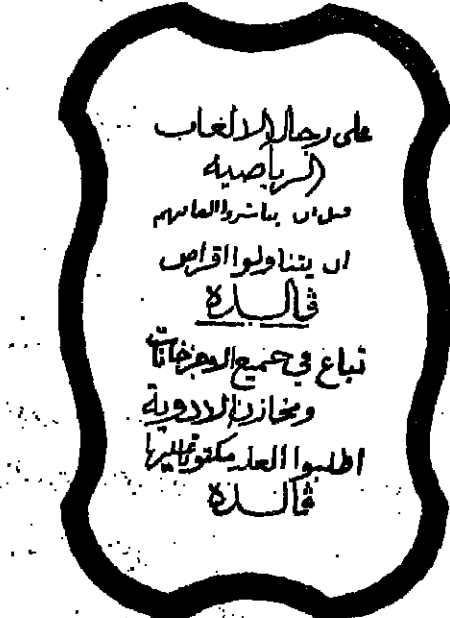 على رجال الالعاب
الرياضيه
قبل ان يباشروا العابهم
ان يتناولوا اقراص
ڤالدة
تباع في جميع الاجزخانات
ومخازن الادوية
اطلبوا العلب مكتوب عليها
ڤالدة